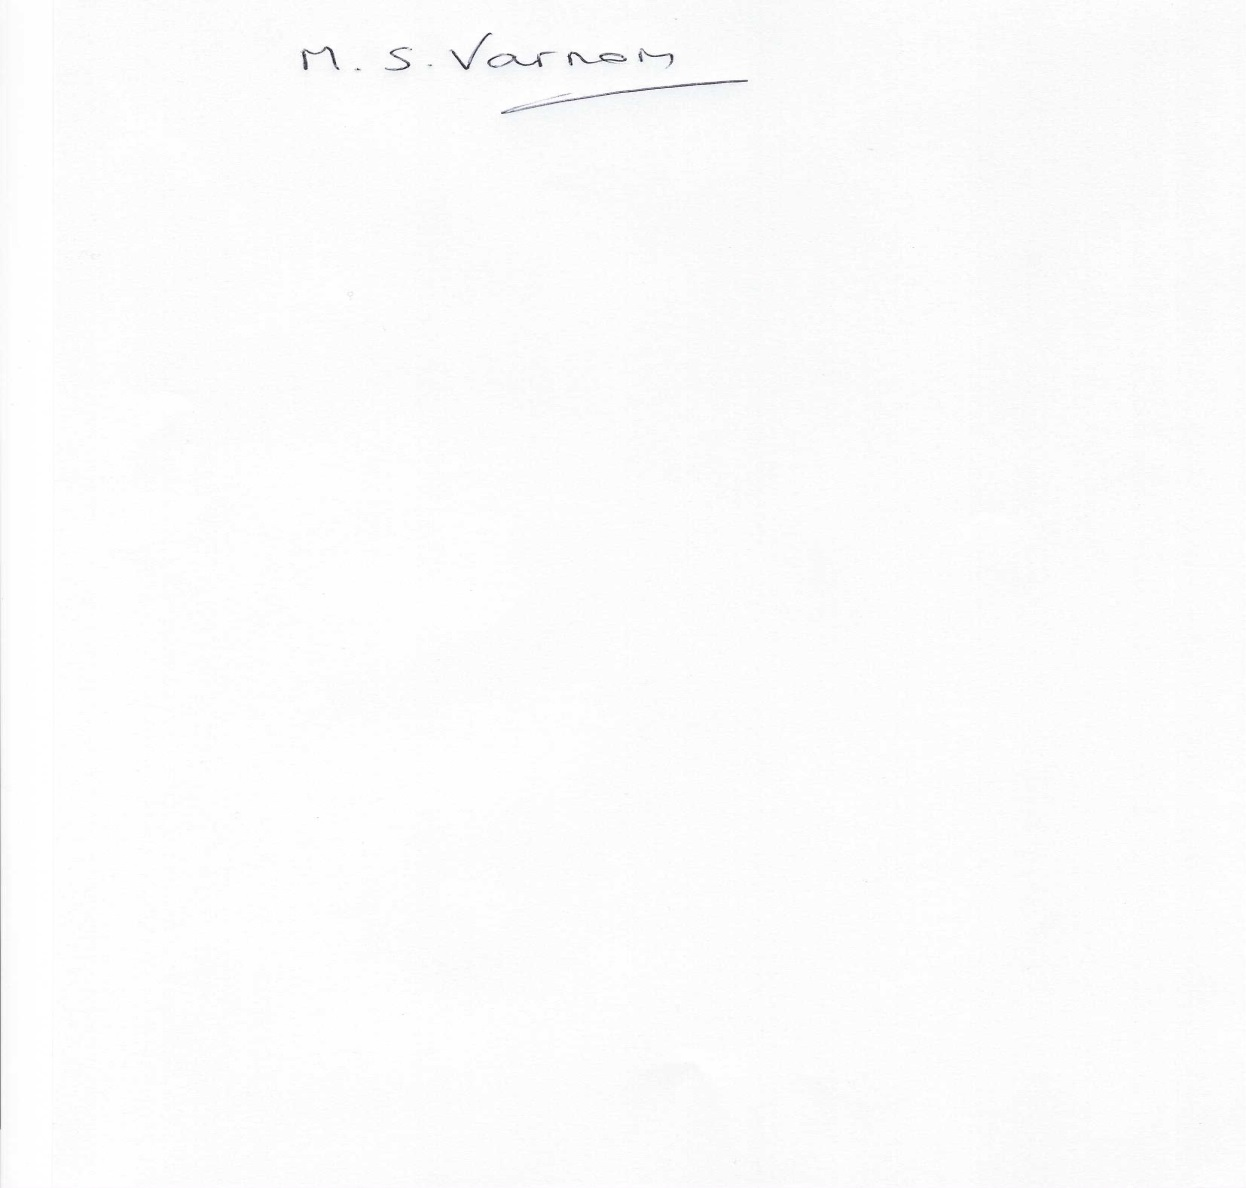 M. S. Varnom